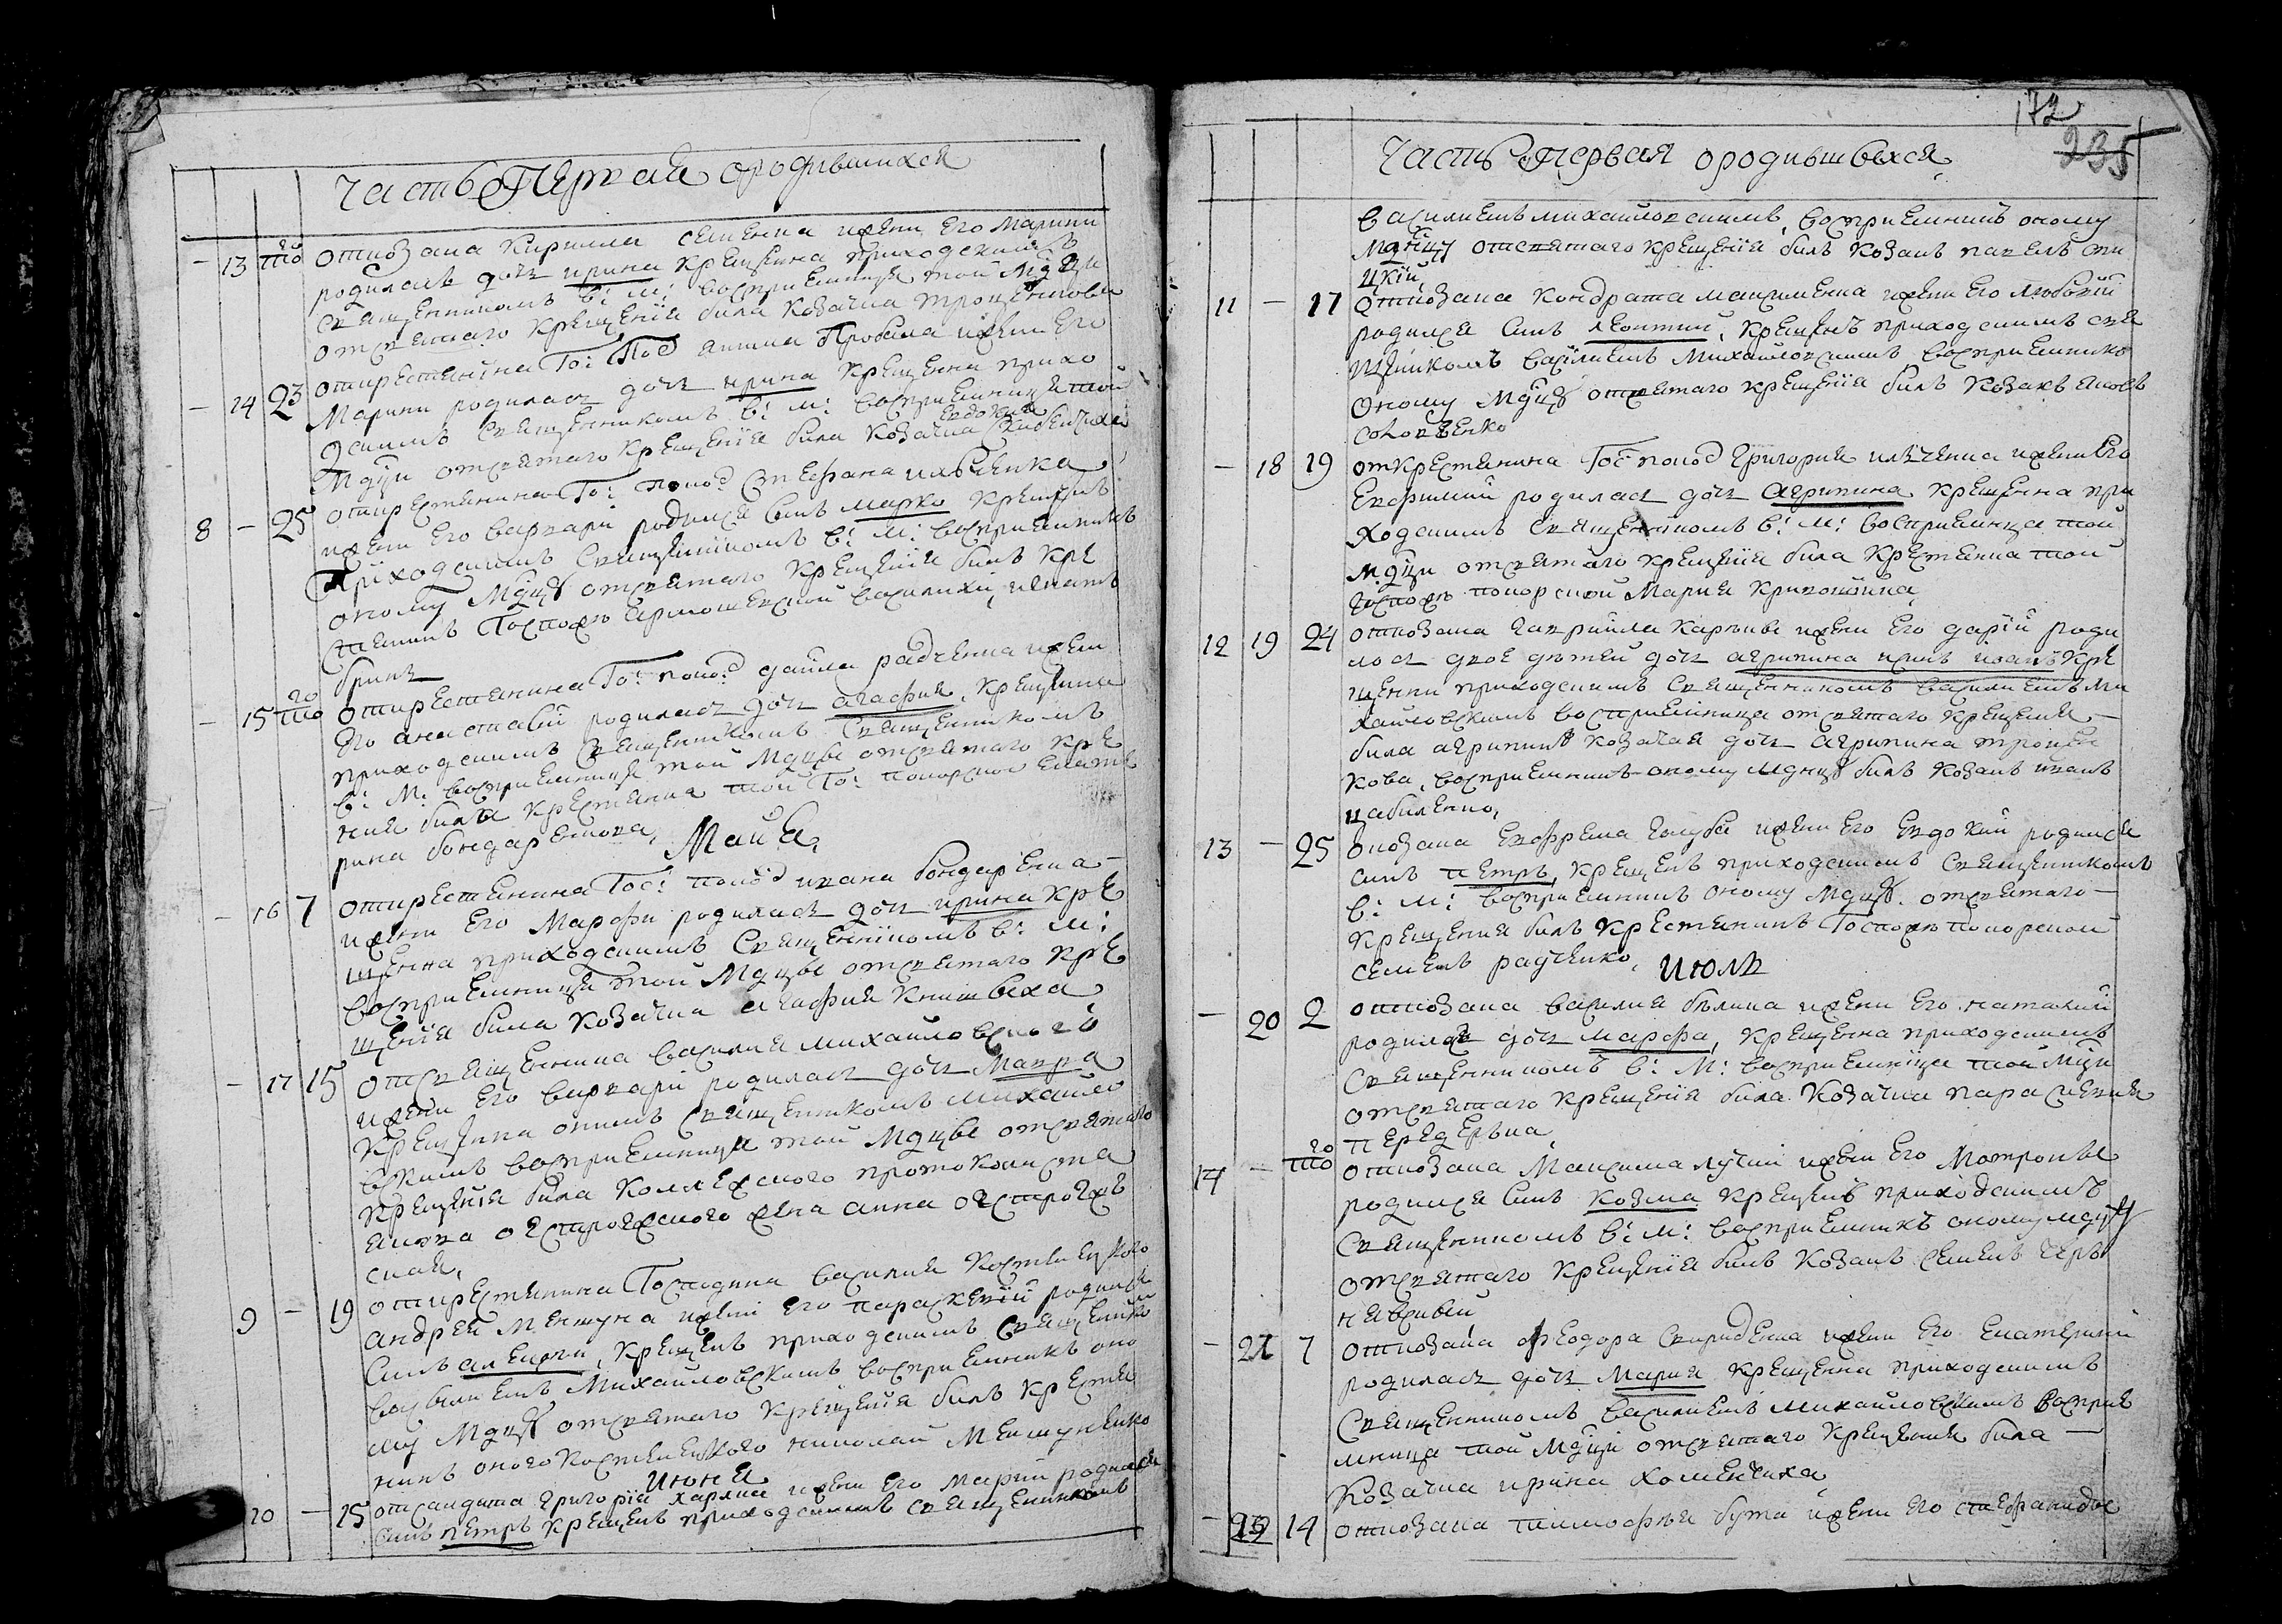 Часть Перваяородившихся
– 13 тоGO откозака Кирилла семенка ижени Его Марини
родилась дочъ ирина крещенна приходскимъ
священникомъ в: м: восприемница той Мдци
отсвятаго крещенїя била козачка троценкова
– 14 23 открестянїна Го: Пос Пробела ижени Его
Марини родилась дочъ ирина крещенна прихо
дскимъ священникомъ в: м: восприемница той
Евдокия
Мдци отсвятаго крещенїя била козачка
8 – 25 открестянина Го: попод Стефана илченка
ижени Его варвари родился синъ марко крещенъ
Приходскимъ священнїкомъ в: м: восприемникъ
оному Мдцу отсвятаго крещенїя билъ кре
стянинъ Госпожи василихи игнатъ
– 15 то откресте­нина Го: попод данїла радченка жени
Его анастасїи родилась дочъ агафия, крещенна
приходскимъ священникомъ
в: М: восприемница той Мдцы отсвятаго кре
ния била крестянка той Го: попорской Екате
рина бондаренкова,
Маиа,
– 16 7 открестянина Гос: попод ивана бондаренка –
ижени Его Марфи родилась дочъ ирина кре
щенна приходскимъ священнїкомъ в: м:
восприемница той Мдцы отсвятаго кре
щенїя била козачка агафия книшиха
– 17 15 отсвященника василия михайловского
ижени Его варвари родилась дочъ Мавра
крещенна онимъ священникомъ михайло
вскимъ восприемница той Мдцы отсвятаго
крещенїя била коллежского протоколиста
якова острожского жена анна острожс
ская,
9 – 19 открестянина Госпадина василия Костенецкого
андрея Менжуна ижени Его параскевїи родился
синъ алексѣй, крещенъ приходскимъ священнико
васылиемъ Михайловскимъ восприемникъ оно
му Мдцу отсвятаго крещенїя билъ крестя
нинъ оного Костенецкого николай Менжуненко
Июня
10 – 15 Григорїя Харлка ижени Его Марїи родился
синъ петръ крещенъ приходскимъ священникомъ
172
235
Часть Первая ородившыхся,
василиемъ михайловскимъ, восприемникъ оному
Мднцу отсвятаго крещенїя билъ козакъ павелъ
цкїй,
11 – 17 откозака кондрата максименка ижени Его любовїи
родился синъ леонтий, крещенъ приходскимъ свя
щенїкомъ васїлиемъ Михайловскимъ восприемникъ
оному Мдцу отсвятаго крещенїя билъ козакъ яковъ
соловченко
– 18 19 открестянина Гос попод Григория илченка ижени Его
Евфимїи родилась дочъ агрипина крещенна при
ходскимъ священнїкомъ в: м: восприемница той
Мдци отсвятаго крещенїя била крестянка той
госпожи попорской Мария кривошийка,
12 19 24 откозака гаврїила карпиѣ ижени Его дарїи роди
лось двое дѣтей дочъ агрипина исинъ иванъ кре
щенни приходскимъ священникомъ василиемъ ми
хайловскимъ восприемница отсвятаго крещения –
била агрипинѣ козачая дочъ агрипина троцен
кова, восприемникъ оному мднцу билъ козакъ иванъ
цабиленко,
13 – 25 окозака Евфрема голубѣ ижени Его Евдокии родился
синъ петръ, крещенъ приходскимъ священникомъ
в: м: восприемникъ оному Мдцу. отсвятаго –
крещения билъ крестянинъ Госпожи попорской
семенъ радченко,
июля
– 20 2 откозака василия бѣлика ижени Его наталїи
родилась дочъ марфа, крещенна приходскимъ
священникомъ в: М: восприемница той Мдци
отсвятаго крещенїя била козачка параскевия
передерѣка,
14 – тоGO откозака Максима лучкї ижени Его Мотроны
родился синъ козма крещенъ приходскимъ
священникомъ в: м: восприемникъ оному мдцу
отсвятаго крещенїя билъ козакъ семенъ черъ
нявскый
– 21 7 откозака феодора свириденка ижени Его Екатерини
родилась дочъ Мария крещенна приходскимъ
священникомъ василиемъ михайловскимъ восприе
мница той мдци отсвятаго крещения била –
козачка ирина хоменчиха,
– 22 14 откозака тимофѣя бута ижени Его стефаниды